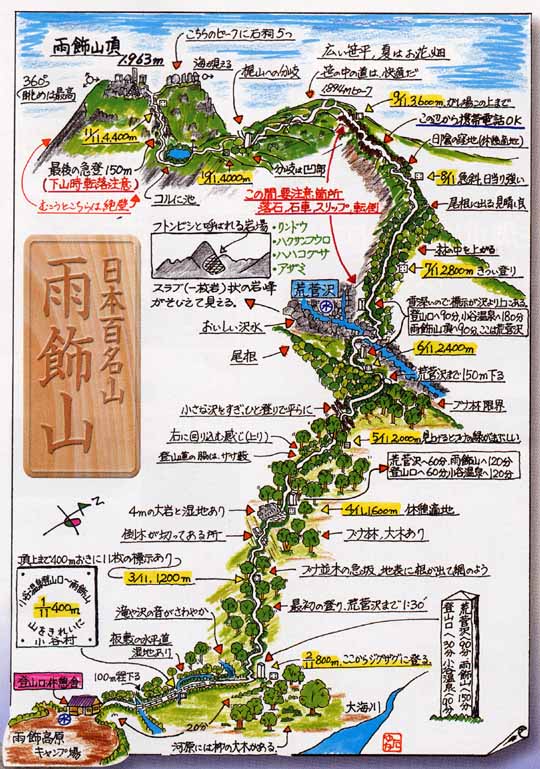 雨飾山頂
1.963m
こちらのピークに石祠5つ
海が見える
360°
眺めは最高
梶山への分岐
広い笹平、夏はお花畑
笹の中の道は、快適だ
1894mピーク
9/11,3,600m
がレ場この上まで
この辺から携帯電話OK
日陰の窪地(休憩適地)
11/11,4,400m
最後の急登150m
(下山時、転落注意)
むこうとこちらは絶壁
コルに池
10/11,4000m
分岐は凹部
8/11 急斜、日当り強い
尾根に出る 見晴し良
この間、要注意箇所
落石,石車,スリップ,転倒
フトンビシと呼ばれる岩場
・リンドウ
・ハクサンフウロ
・ハハコグサ
アザミ
スラブ(一枚岩)状の岩峰
がそびえて見える。
林の中を上がる
7/11,2800m きつい登り
荒菅沢
登山口へ90分、小谷温泉へ180分
雨飾山頂へ90分、ここは荒菅沢
おいしい沢水
尾根
6/11,2,400m
荒菅沢まで150m下る
ブナ林限界
日本百名山
雨飾山
小さな沢とすぎ、ひと登りで平らに
右に回り込む感じ(上り)
登山道の脇は、ササ藪
5/11,2000m
荒菅沢へ60分、雨飾山へ120分
登山口へ60分 小谷温泉へ120分
N
4mの大岩と湿地あり
倒木が切ってある所
4/11,1,600m 休憩適地
ブナ林、大木あり
頂上まで400mおきに11枚の標示あり
3/11,1,200m
ブナ並木の急坂、地表に根が出て網のよう
小谷温泉登山口〜雨飾山
1/11 400m
山をきれいに
小谷村
滝や沢の音がさわやか
板敷の水平道
湿地あり
最初の登り、荒菅沢まで1:30'
荒菅沢へ90分 雨飾山へ150分
登山口へ30分 小谷温泉へ90分
2/11 800m、ここからジグザグに登る。
100m程下る
登山口休憩舎
20分
大海川
雨飾高原
キャンプ場
河原には柳の大木がある。